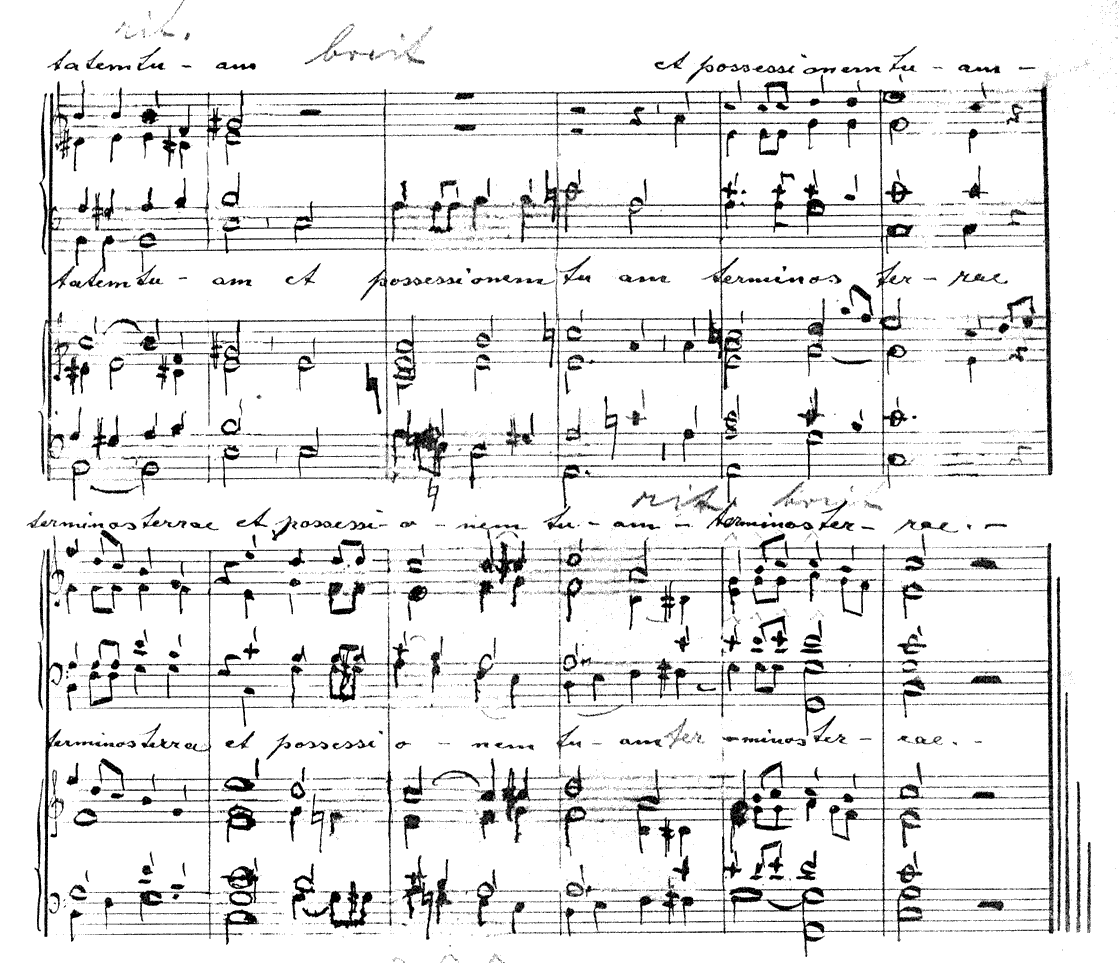 rit. breit
tatem tu - am et possessionem tu - am -
tatem tu - am et possessionem tu am terminos ter - rae
rit. breit
terminos terrae et possessi - o - nem tu - am - terminos ter - rae. -
terminos terrae et possessi o - nem tu - am ter - minos ter - rae. -